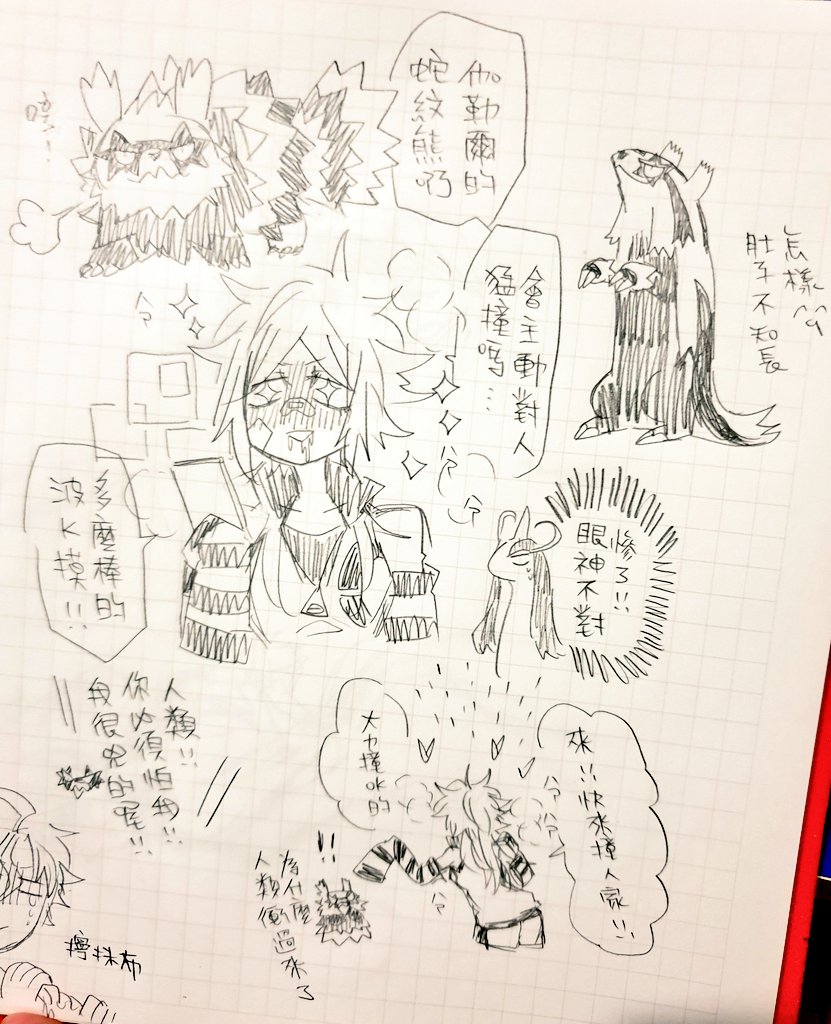 伽勒爾的
蛇紋熊啊
會主動對人
猛撞嗎…
怎樣
肚子不知長
多麼棒的
波K摸!!
慘了!!
眼神不對
人類!!
你必須怕我!!
我很兇的喔!!
來!!快來撞人家!!
大力撞ok的
!!
為什麼
人類衝過來了
擰抹布